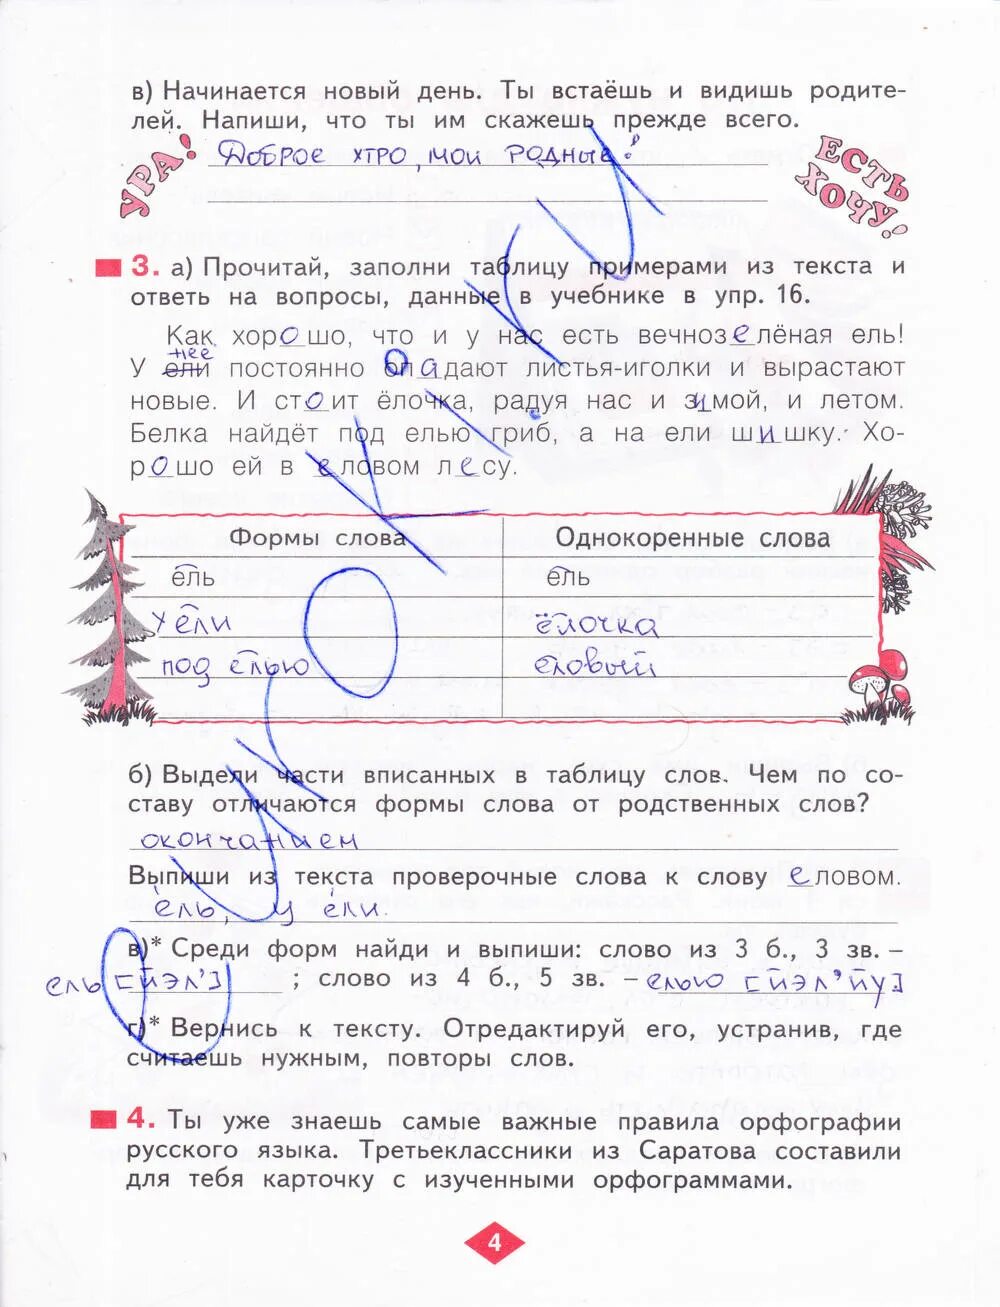 в) Начинается новый день. Ты встаёшь и видишь родите-
лей. Напиши, что ты им скажешь прежде всего.
УРА!
Доброе утро, мои родные!
ЕСТЬ
ХОЧУ!
3. а) Прочитай, заполни таблицу примерами из текста и
ответь на вопросы, данные в учебнике в упр. 16.
Как хорошо, что и у нас есть вечнозелёная ель!
нее
У ели постоянно опадают листья-иголки и вырастают
новые. И стоит ёлочка, радуя нас и зимой, и летом.
Белка найдёт под елью гриб, а на ели шишку. Хо-
рошо ей в еловом лесу.
Формы слова Однокоренные слова
ель ель
у ели ёлочка
под елью еловый
б) Выдели части вписанных в таблицу слов. Чем по со-
ставу отличаются формы слова от родственных слов?
окончанием
Выпиши из текста проверочные слова к слову еловом.
ель, у ели.
в)* Среди форм найди и выпиши: слово из 3 б., 3 зв. –
ель [йэл'] ; слово из 4 б., 5 зв. – елью [йэл'йу]
г)* Вернись к тексту. Отредактируй его, устранив, где
считаешь нужным, повторы слов.
4. Ты уже знаешь самые важные правила орфографии
русского языка. Третьеклассники из Саратова составили
для тебя карточку с изученными орфограммами.
4